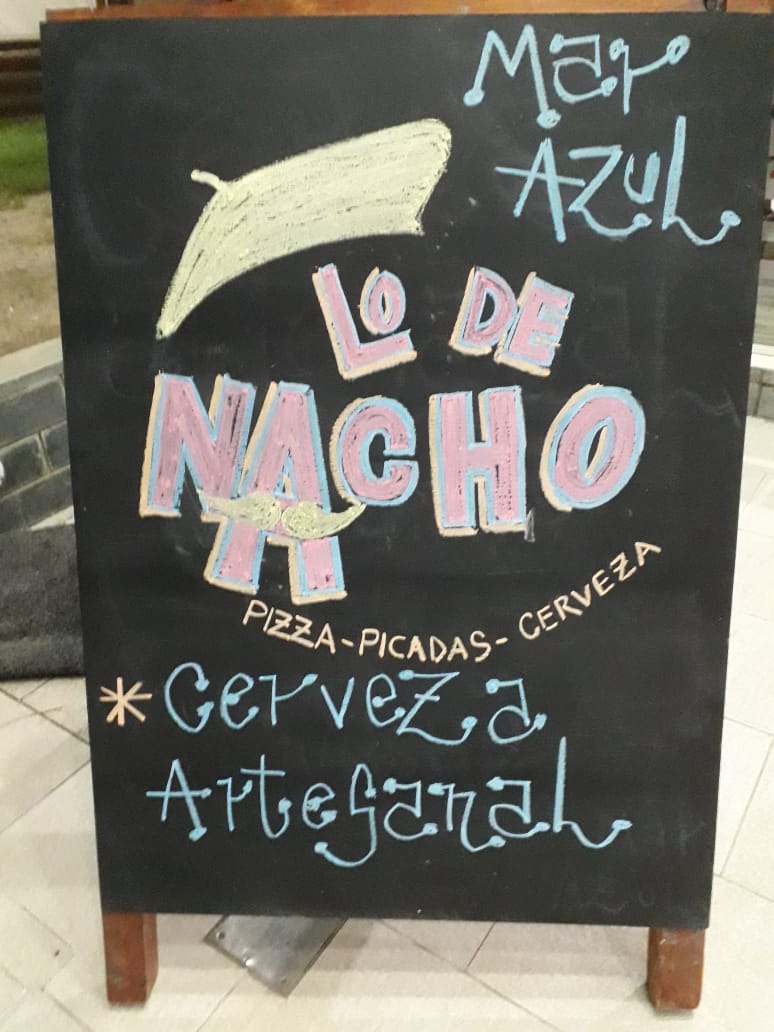 Mar
Azul
LO DE
NACHO
PIZZA-PICADAS-CERVEZA
* Cerveza
Artesanal